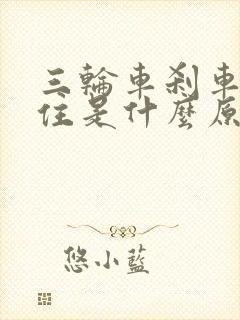 三輪車刹車
住是什麼原
悠小藍